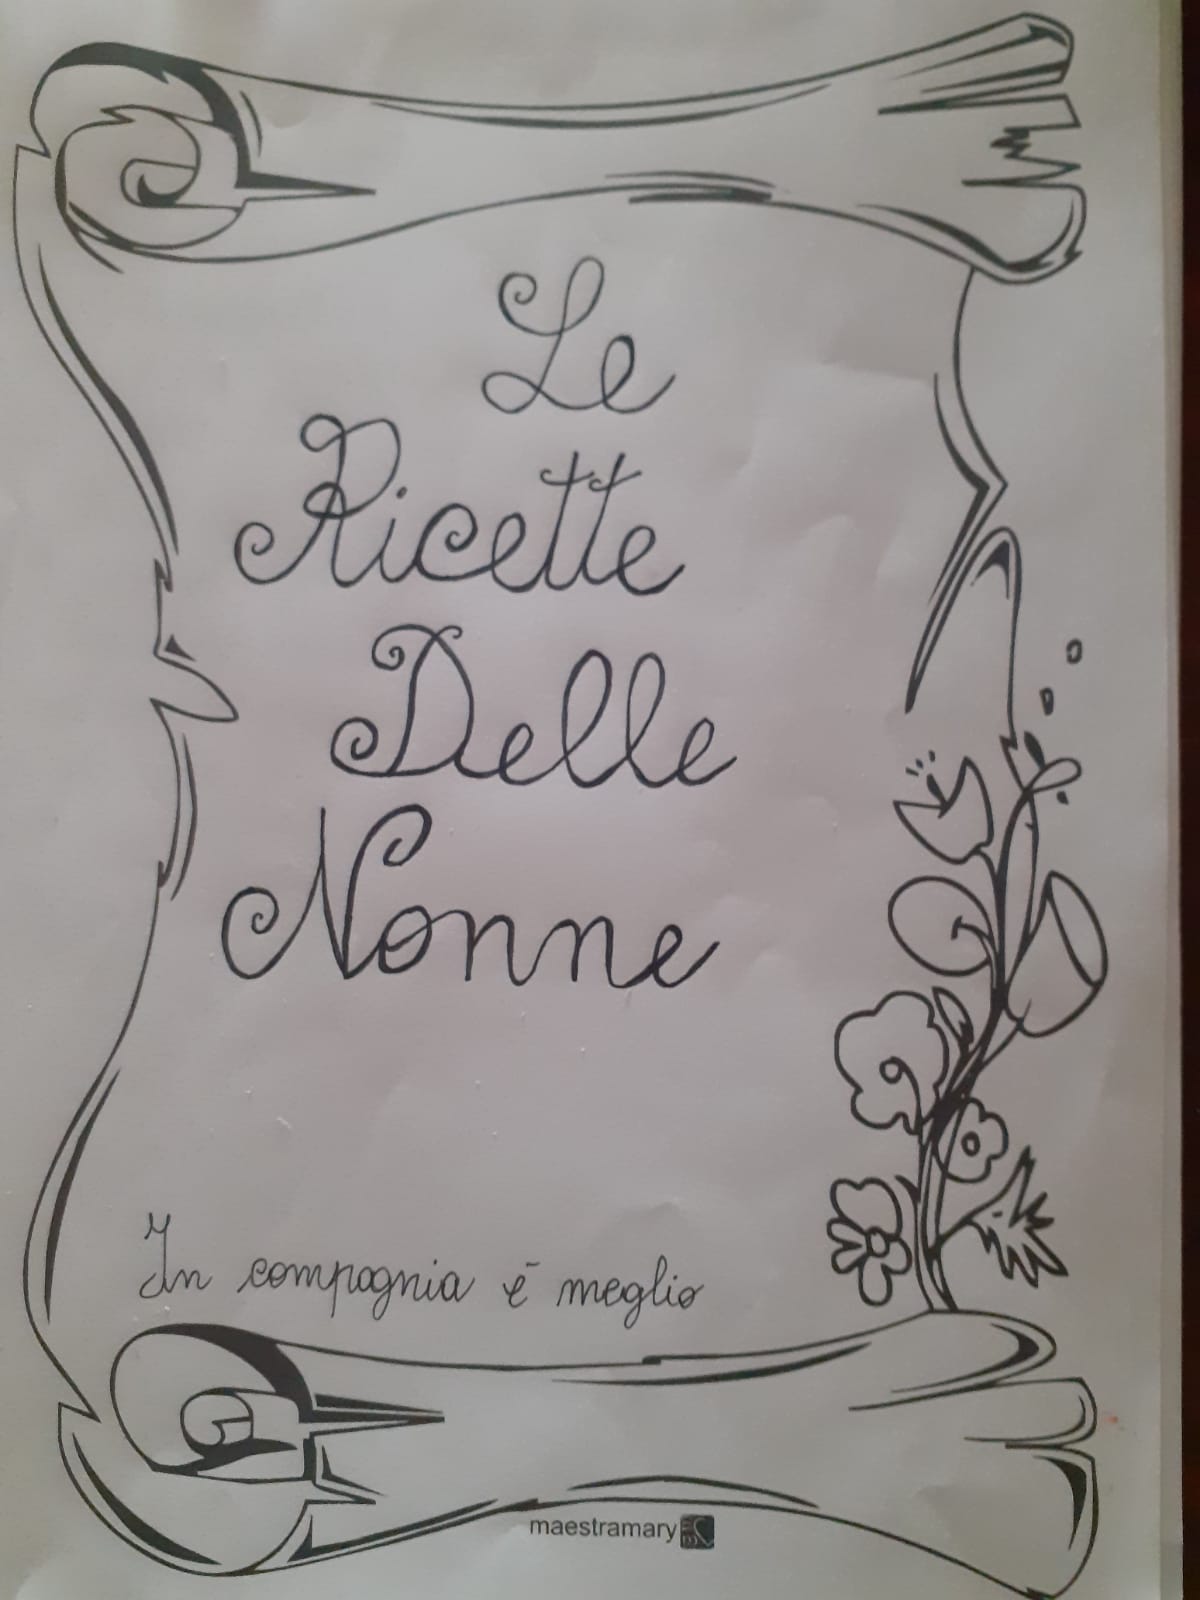 Le
Ricette
Delle
Nonne
In compagnia è meglio
maestramary